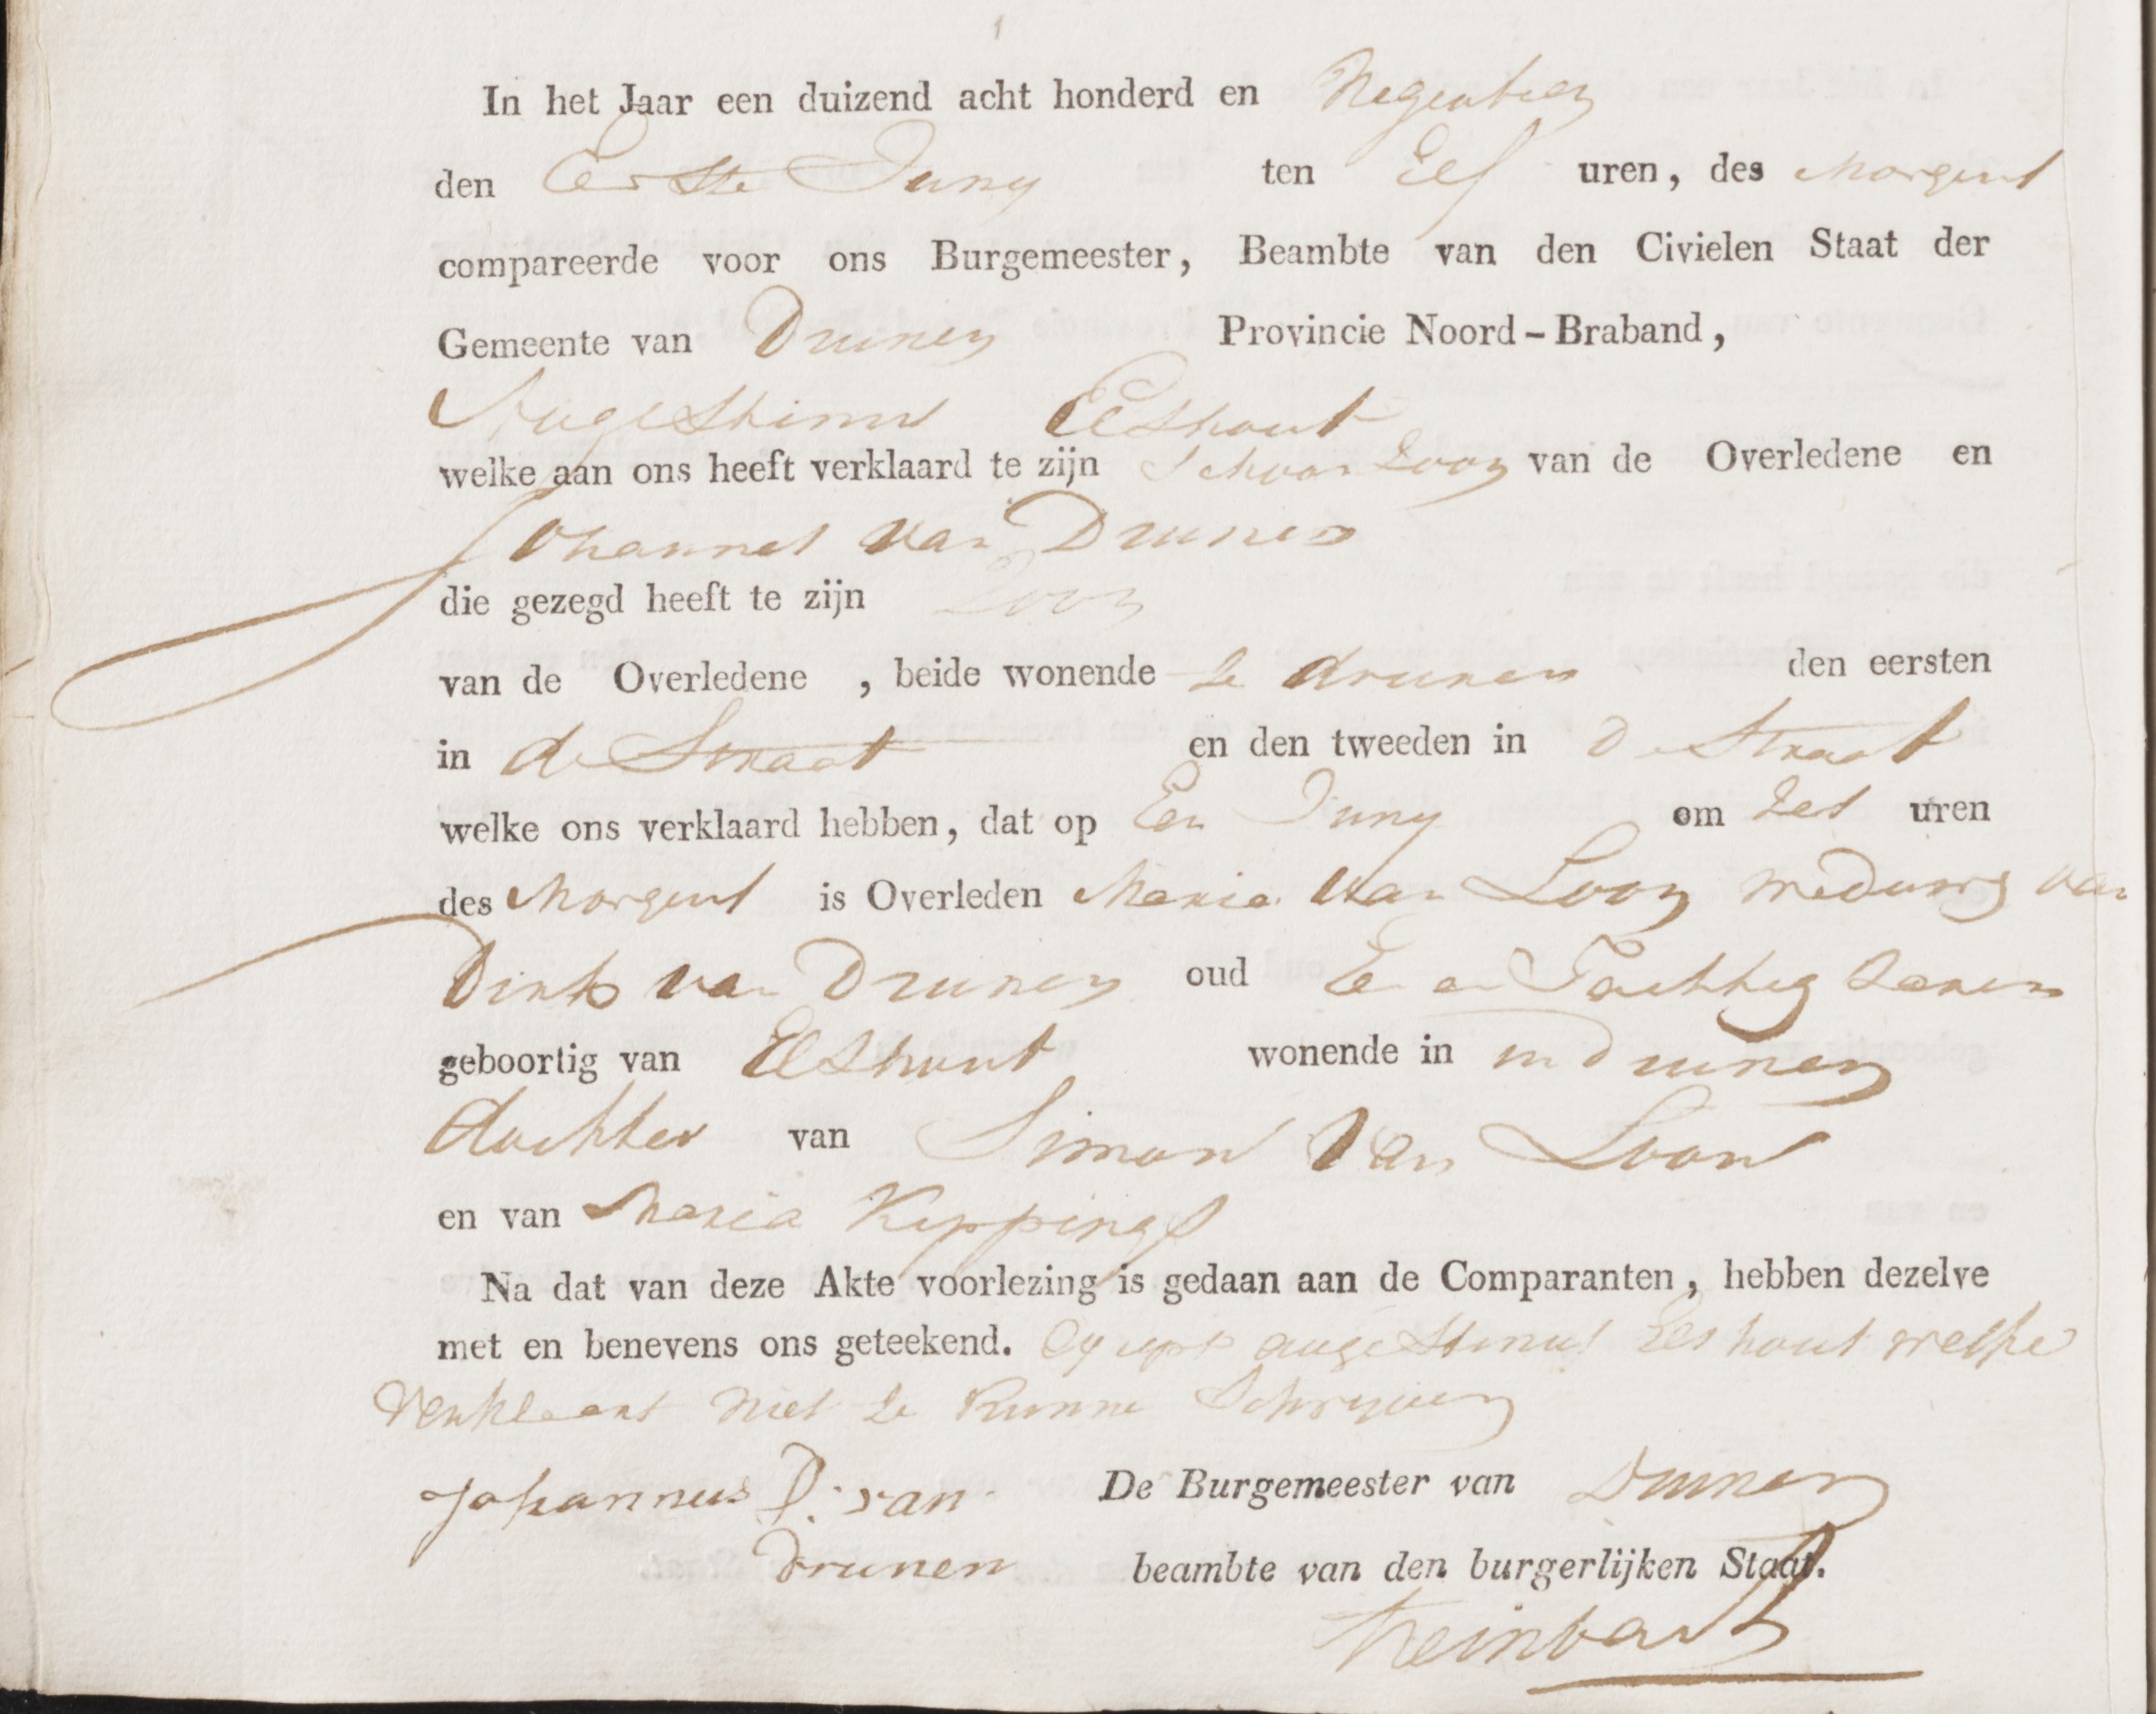 In het Jaar een duizend acht honderd en Negentien
den Eerste Juny ten Elf uren, des Morgens
compareerde voor ons Burgemeester, Beambte van den Civielen Staat der
Gemeente van Drunen Provincie Noord-Braband,
Augestinus Elshout
welke aan ons heeft verklaard te zijn Schoonzoon van de Overledene en
Johannes van Drunen
die gezegd heeft te zijn Zoon
van de Overledene, beide wonende te drunen den eersten
in de Straat en den tweeden in de Straat
welke ons verklaard hebben, dat op Een Juny om Zes uren
des Morgens is Overleden Maria van Loon weduwe van
Dirk van Drunen oud Een en Tachtig Jaren
geboortig van Elshout wonende in in drunen
dochter van Simon van Loon
en van Maria Kippings
Na dat van deze Akte voorlezing is gedaan aan de Comparanten, hebben dezelve
met en benevens ons geteekend. augestinus Elshout welke
Verklaart niet te kunne Schryven
Johannes D: van De Burgemeester van Drunen
drunen beambte van den burgerlijken Staat.